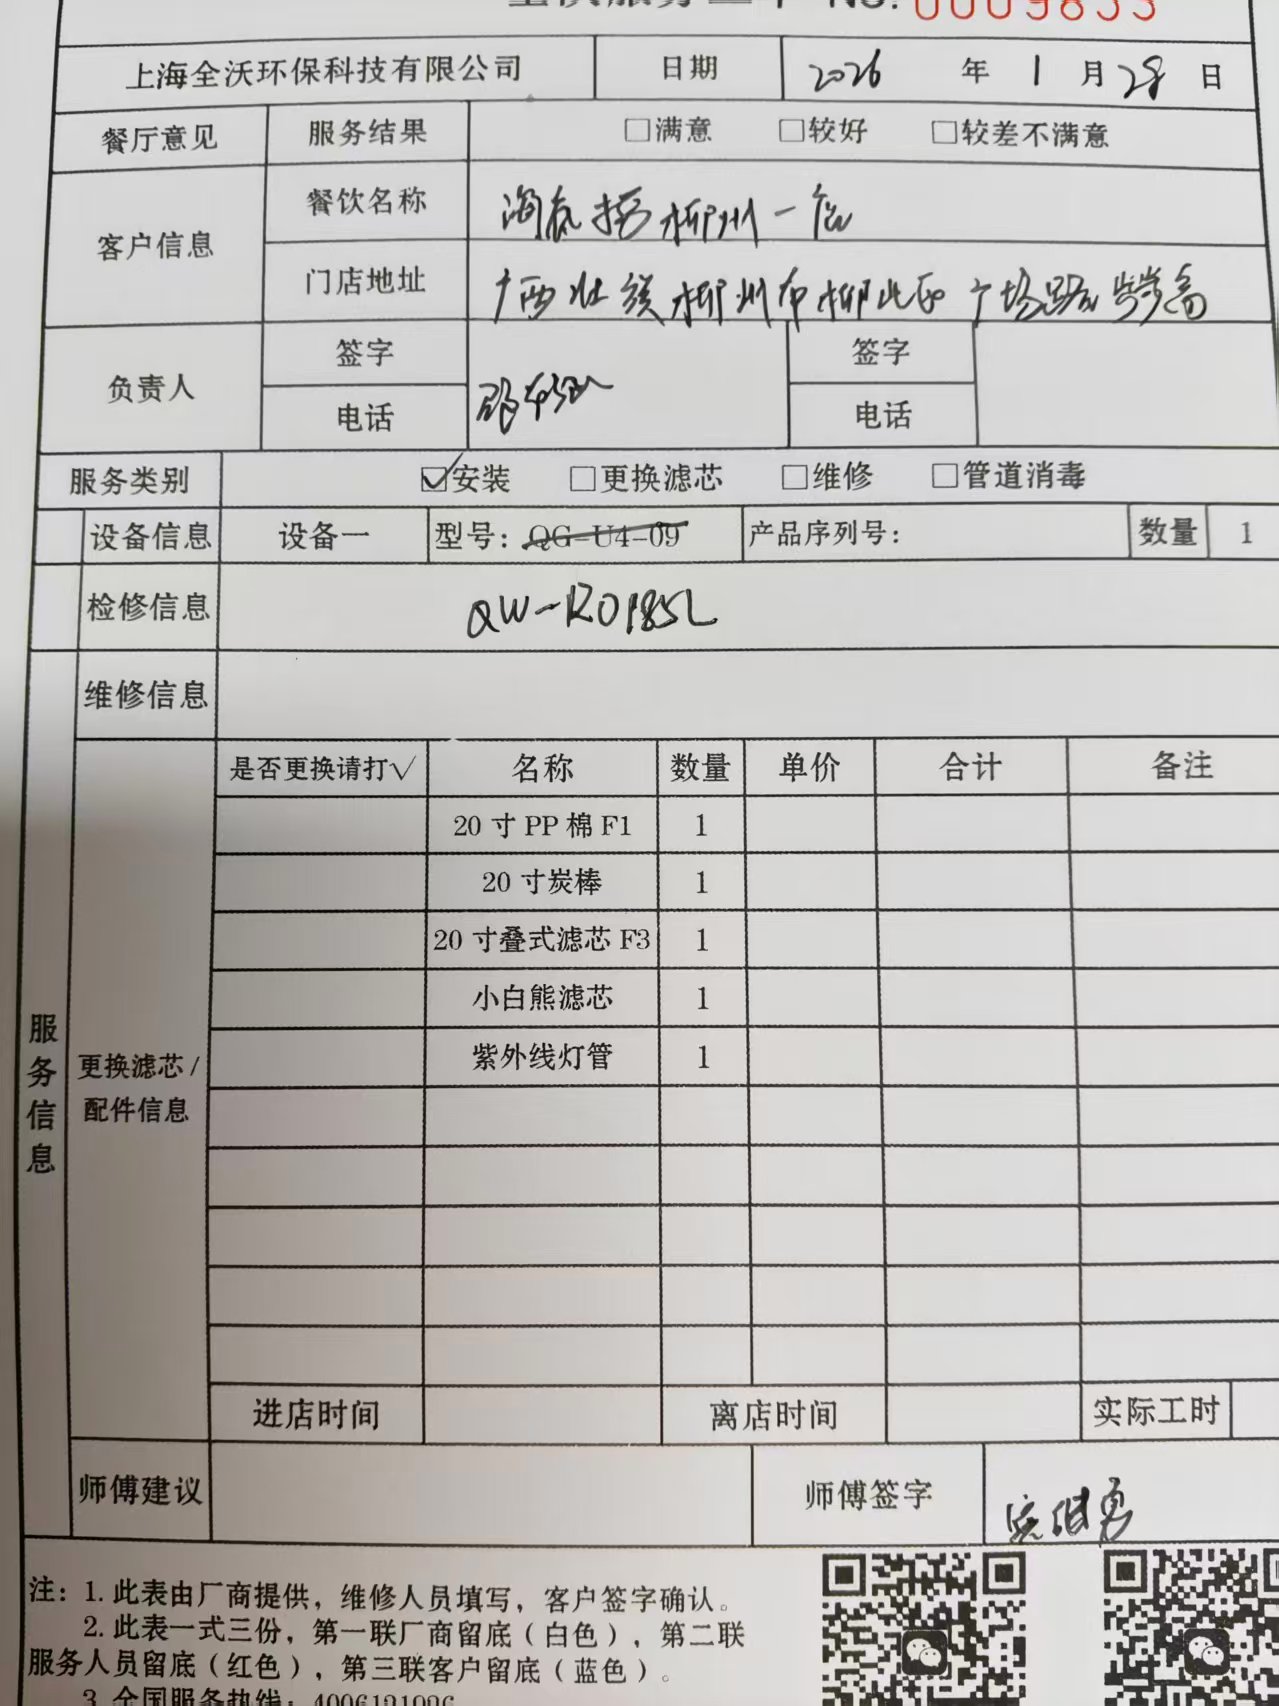 全沃服务工单 NO. 0009833
上海全沃环保科技有限公司 日期 2026 年 1 月 28 日
餐厅意见 服务结果 □满意 □较好 □较差不满意
客户信息 餐饮名称 柳州一店
门店地址 广西壮族柳州市柳北区广场路
负责人 签字 签字
电话 电话
服务类别 ☑安装 □更换滤芯 □维修 □管道消毒
设备信息 设备一 型号：QG-U4-09 产品序列号： 数量 1
检修信息 QW-RO185L
维修信息
是否更换请打√ 名称 数量 单价 合计 备注
20 寸 PP 棉 F1 1
20 寸炭棒 1
20 寸叠式滤芯 F3 1
小白熊滤芯 1
紫外线灯管 1
服务信息
更换滤芯 /
配件信息
进店时间 离店时间 实际工时
师傅建议 师傅签字
注：1. 此表由厂商提供，维修人员填写，客户签字确认。
2. 此表一式三份，第一联厂商留底（白色），第二联
服务人员留底（红色），第三联客户留底（蓝色）。
3. 全国服务热线：